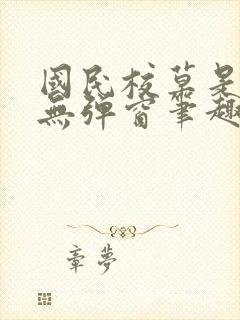 國民校草是
無彈窗筆趣
章夢